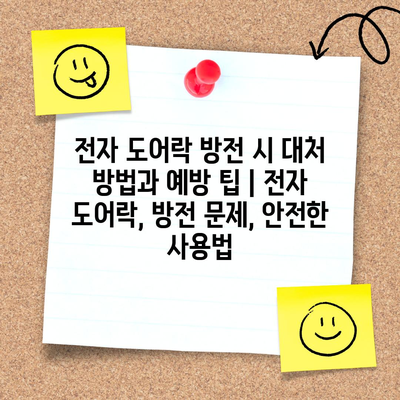 전자 도어락 방전 시 대처
방법과 예방 팁 | 전자
도어락, 방전 문제, 안전한
사용법